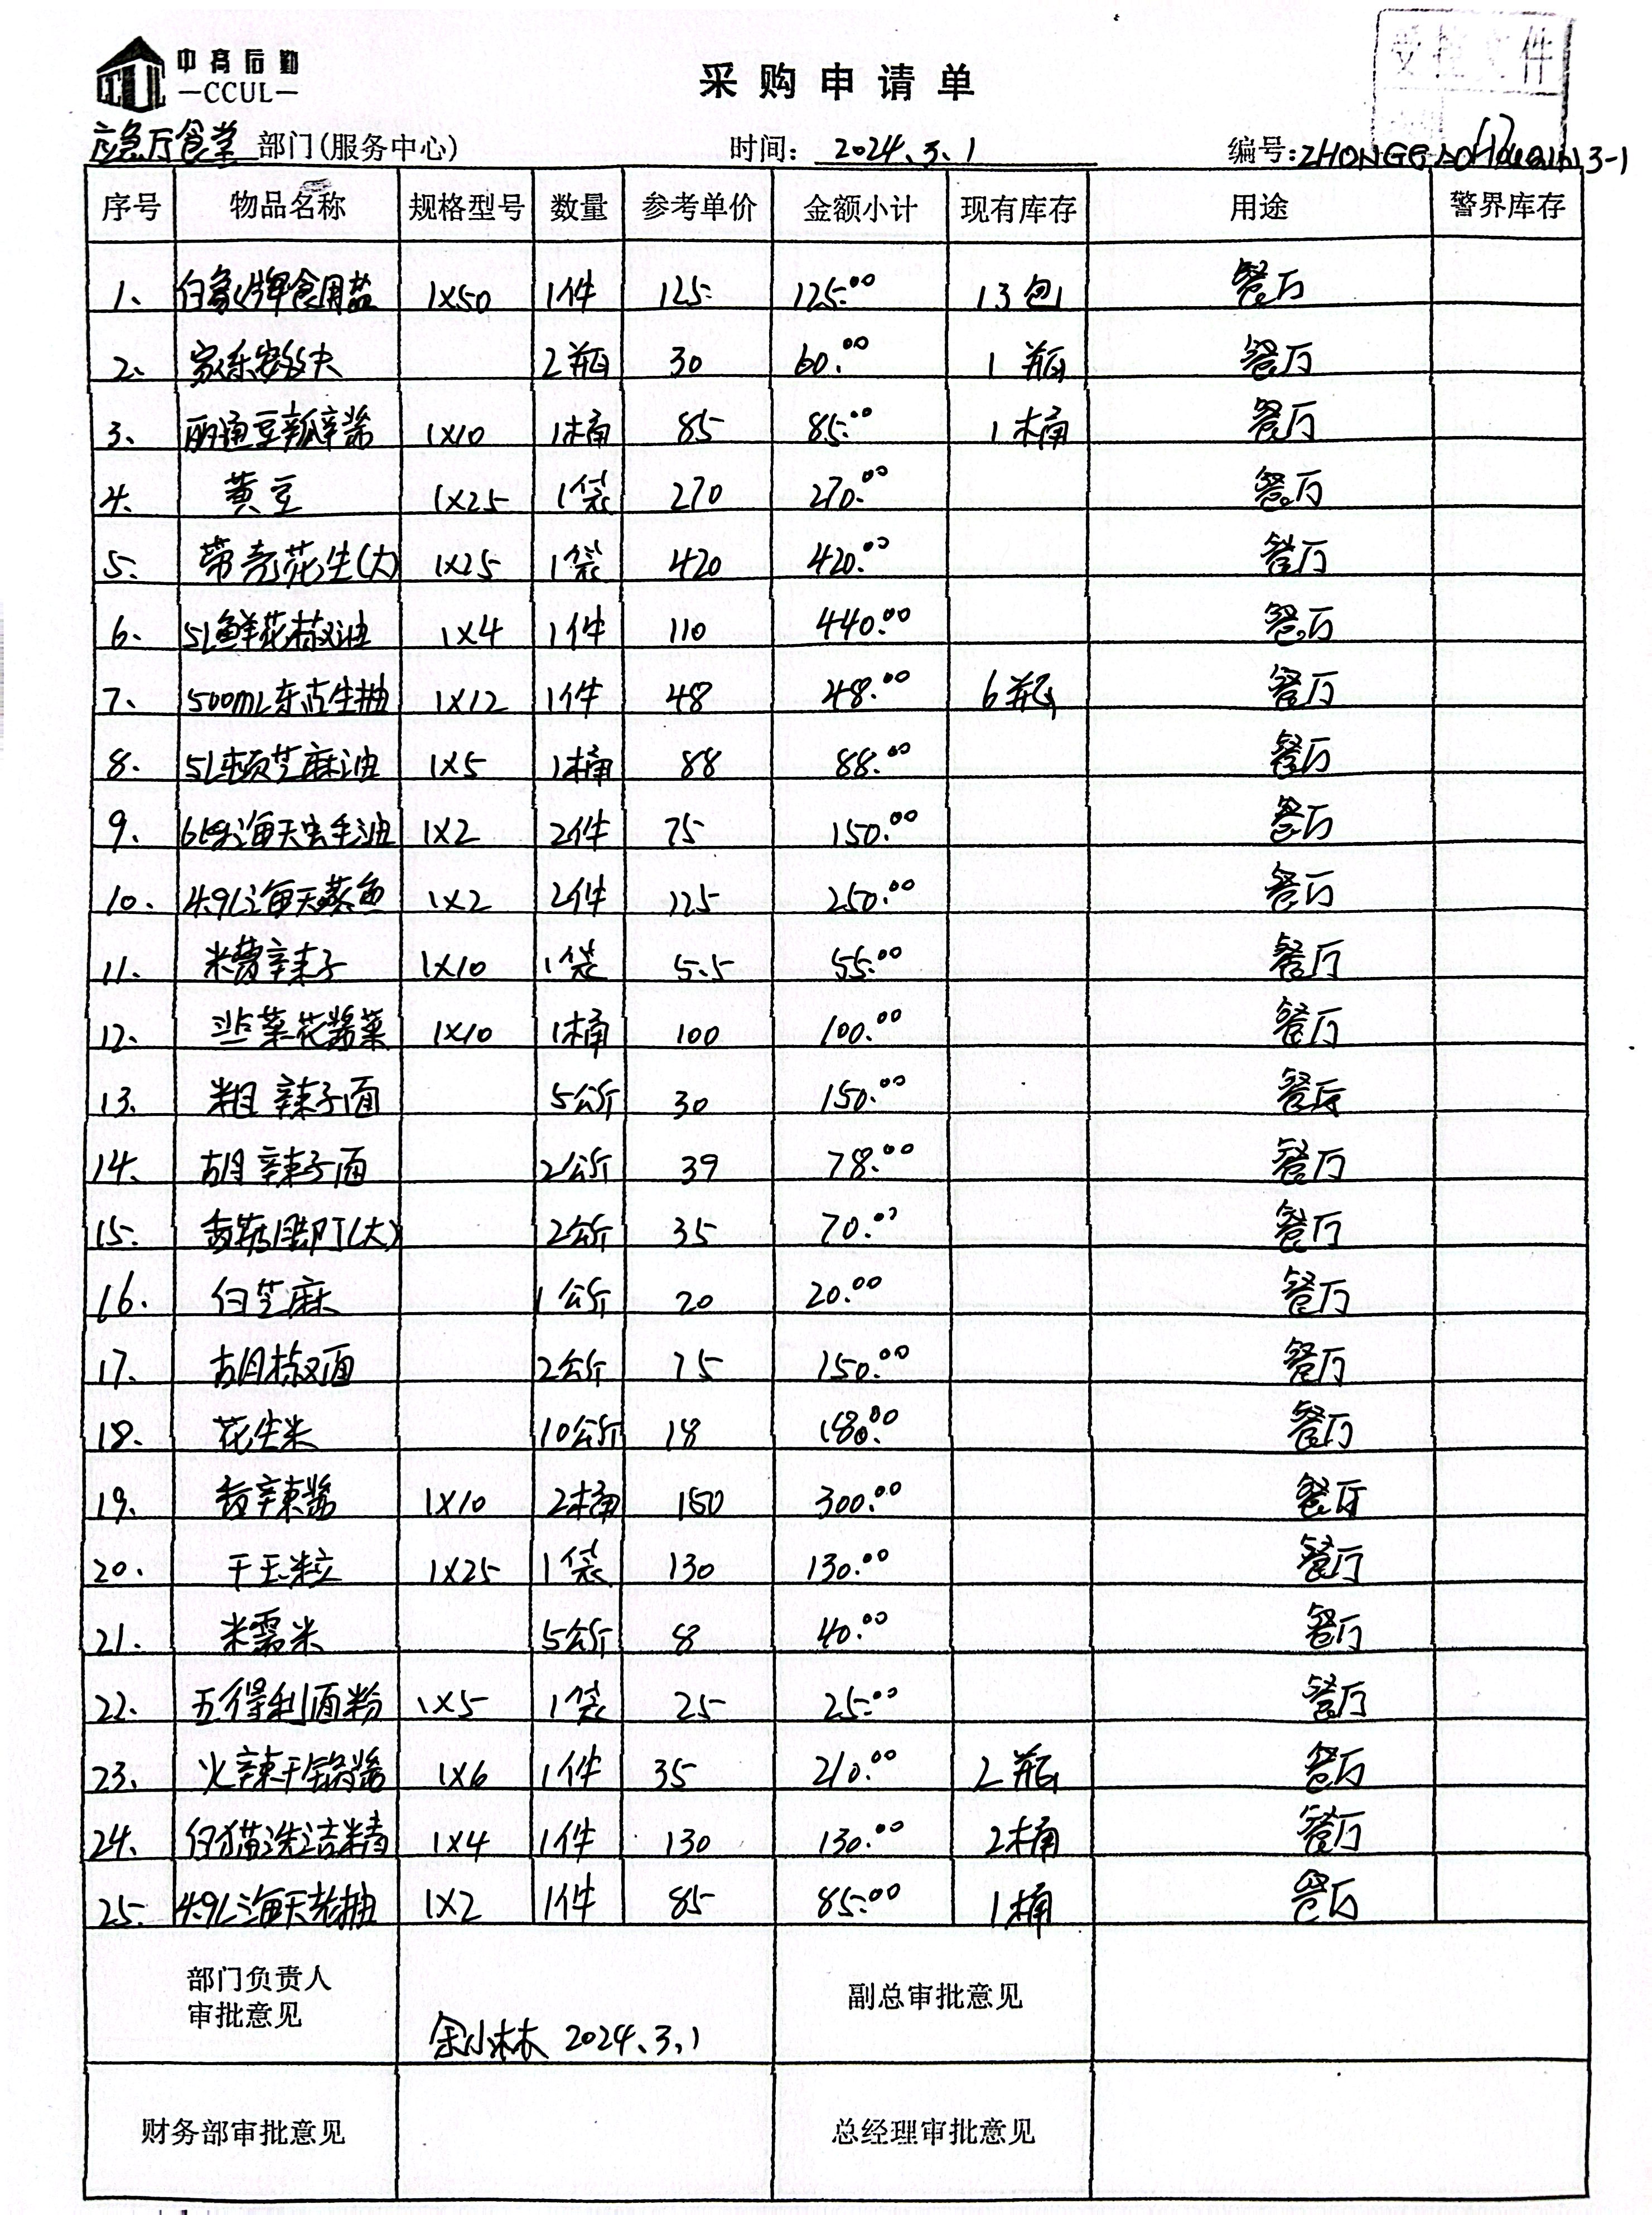 中高后勤
—CCUL—
采购申请单
受控文件
应急厅食堂 部门(服务中心) 时间: 2024.3.1 编号:
序号 物品名称 规格型号 数量 参考单价 金额小计 现有库存 用途 警界库存
1、 白象牌食用盐 1X50 1件 125 125.00 13包 餐厅
2、 家乐 2瓶 30 60.00 1瓶 餐厅
3、 丽通豆瓣酱 1X10 1桶 85 85.00 1桶 餐厅
4. 黄豆 1X25 1袋 270 270.00 餐厅
5. 带壳花生(大) 1X25 1袋 420 420.00 餐厅
6. 5L鲜花椒油 1X4 1件 110 440.00 餐厅
7、 500mL东古生抽 1X12 1件 48 48.00 6瓶 餐厅
8. 5L 芝麻油 1X5 1桶 88 88.00 餐厅
9. 海天 油 1X2 2件 75 150.00 餐厅
10. 4.9L海天蒸鱼 1X2 2件 125 250.00 餐厅
11. 糟辣子 1X10 1袋 5.5 55.00 餐厅
12. 韭菜花酱菜 1X10 1桶 100 100.00 餐厅
13. 粗辣子面 5公斤 30 150.00 餐厅
14. 胡辣子面 2公斤 39 78.00 餐厅
15. (大) 2公斤 35 70.00 餐厅
16. 白芝麻 1公斤 20 20.00 餐厅
17. 胡椒面 2公斤 75 150.00 餐厅
18. 花生米 10公斤 18 180.00 餐厅
19. 香辣酱 1X10 2桶 150 300.00 餐厅
20. 干玉粒 1X25 1袋 130 130.00 餐厅
21. 糯米 5公斤 8 40.00 餐厅
22. 五得利面粉 1X5 1袋 25 25.00 餐厅
23. 火辣干锅酱 1X6 1件 35 210.00 2瓶 餐厅
24. 白猫洗洁精 1X4 1件 130 130.00 2桶 餐厅
25. 4.9L海天老抽 1X2 1件 85 85.00 1桶 餐厅
部门负责人
审批意见
副总审批意见
余小林 2024.3.1
财务部审批意见 总经理审批意见